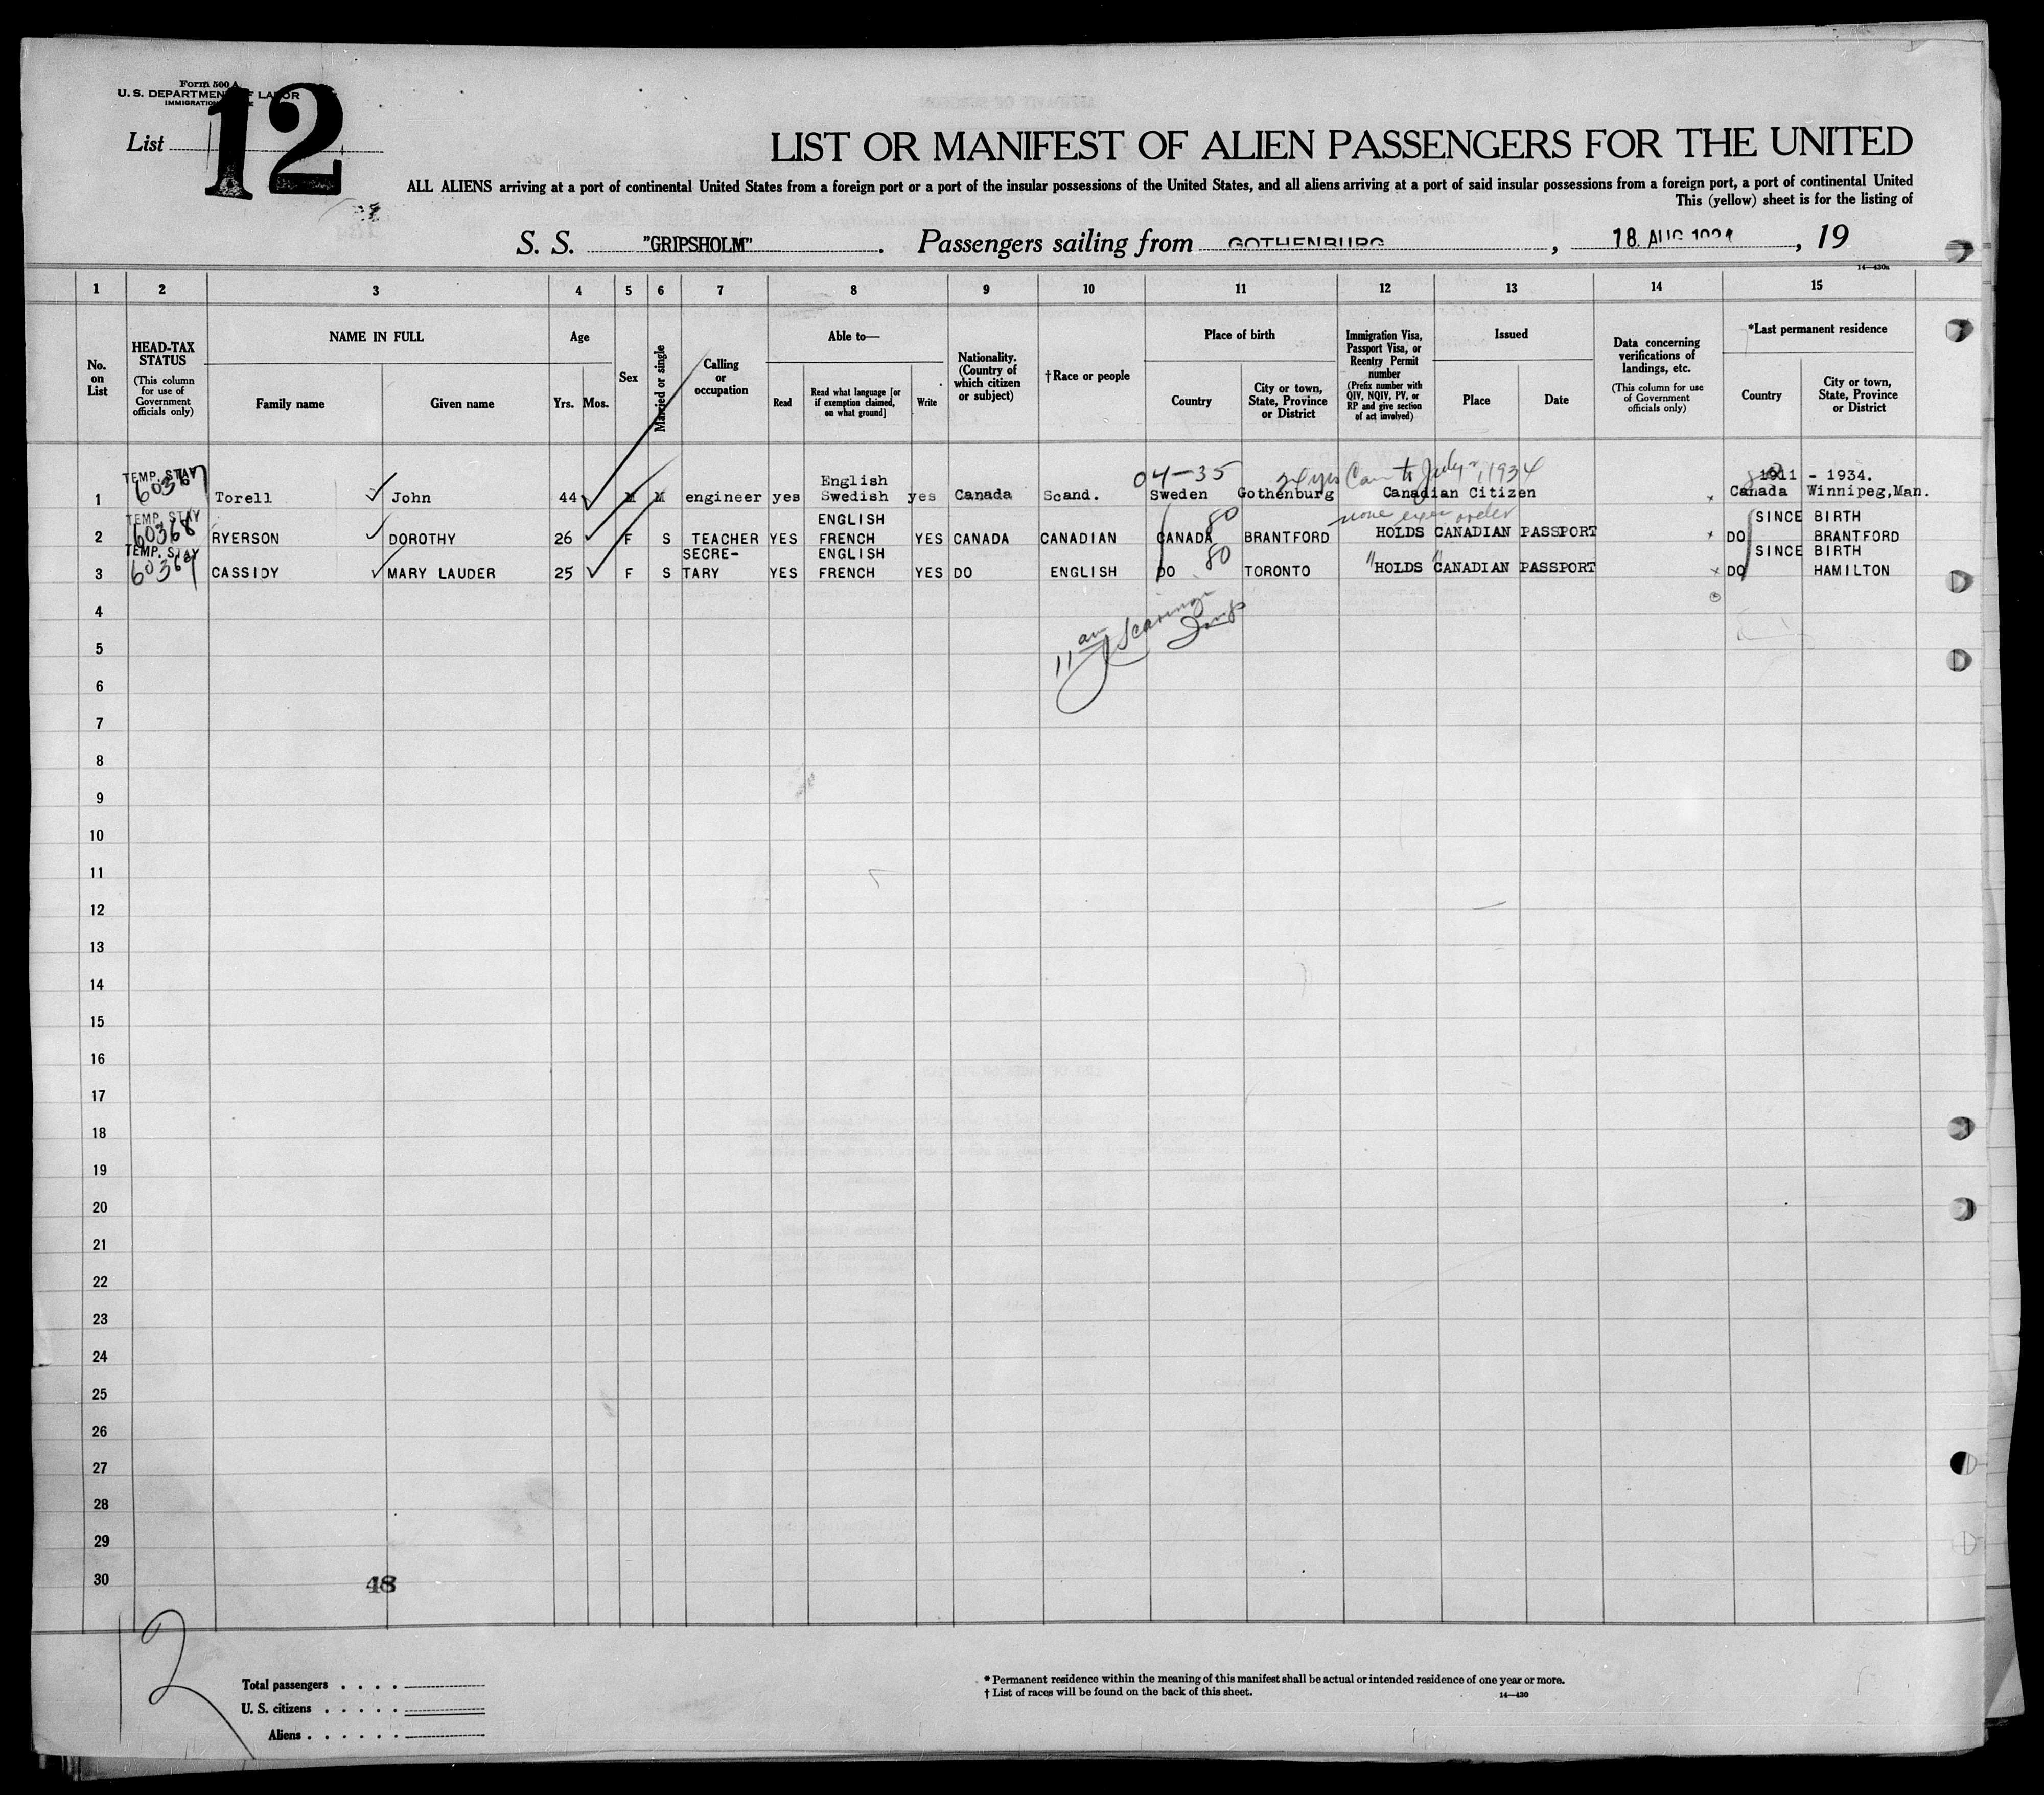 Form 500 A
U. S. DEPARTMENT OF LABOR
IMMIGRATION
List 12
LIST OR MANIFEST OF ALIEN PASSENGERS FOR THE UNITED
ALL ALIENS arriving at a port of continental United States from a foreign port or a port of the insular possessions of the United States, and all aliens arriving at a port of said insular possessions from a foreign port, a port of continental United
This (yellow) sheet is for the listing of
S. S. "GRIPSHOLM". Passengers sailing from GOTHENBURG, 18. AUG 1934, 19
14—430a
1 2 3 4 5 6 7 8 9 10 11 12 13 14 15
No. on List
HEAD-TAX STATUS (This column for use of Government officials only)
NAME IN FULL
Family name Given name
Age
Yrs. Mos.
Sex
Married or single
Calling or occupation
Able to—
Read
Read what language [or if exemption claimed, on what ground]
Write
Nationality. (Country of which citizen or subject)
†Race or people
Place of birth
Country
City or town, State, Province or District
Immigration Visa, Passport Visa, or Reentry Permit number (Prefix number with QIV, NQIV, PV, or RP and give section of act involved)
Issued
Place Date
Data concerning verifications of landings, etc. (This column for use of Government officials only)
*Last permanent residence
Country
City or town, State, Province or District
04-35 24 yrs Can to July 1934
TEMP. STAY 60367 English 1911 - 1934.
1 Torell John 44 M M engineer yes Swedish yes Canada Scand. Sweden Gothenburg Canadian Citizen Canada Winnipeg, Man.
TEMP. STAY 60368 ENGLISH 80 none exec order SINCE BIRTH
2 RYERSON DOROTHY 26 F S TEACHER YES FRENCH YES CANADA CANADIAN CANADA BRANTFORD HOLDS CANADIAN PASSPORT DO BRANTFORD
TEMP. STAY 60369 SECRE- ENGLISH 80 SINCE BIRTH
3 CASSIDY MARY LAUDER 25 F S TARY YES FRENCH YES DO ENGLISH DO TORONTO " HOLDS " CANADIAN PASSPORT DO HAMILTON
4
5
11 am
6
7
8
9
10
11
12
13
14
15
16
17
18
19
20
21
22
23
24
25
26
27
28
29
30
48
12
Total passengers
U. S. citizens
Aliens
* Permanent residence within the meaning of this manifest shall be actual or intended residence of one year or more.
† List of races will be found on the back of this sheet.
14—430